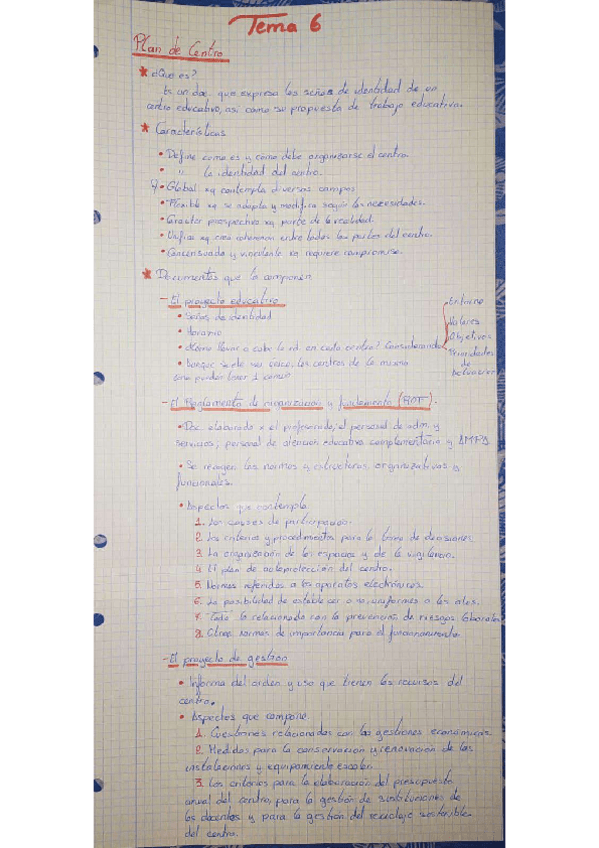 Tema 6
Plan de Centro
* ¿Que es?
Es un doc. que expresa las señas de identidad de un
centro educativo, así como su propuesta de trabajo educativo.
* Características
• Define como es y cómo debe organizarse el centro.
• " la identidad del centro.
• Global xq contempla diversos campos
• Flexible xq se adapta y modifica según las necesidades.
• Caracter prospectivo xq parte de la realidad.
• Unifica xq crea coherencia entre todas las partes del centro.
• Consensuada y vinculante xq requiere compromiso.
* Documentos que lo componen
- El proyecto educativo
• Señas de identidad
• Horario
• ¿Cómo llevar a cabo la ed. en cada centro? Considerando
Entorno
Valores
Objetivos
Prioridades
de
actuación
• Aunque suele ser único, los centros de la misma
zona pueden tener 1 común
- El Reglamento de organización y funcionamiento (ROF).
• Doc. elaborado x el profesorado, el personal de adm. y
servicios, personal de atención educativa complementaria y AMPA
• Se recogen las normas y estructuras organizativas y
funcionales.
• Aspectos que contempla
1. Los cauces de participación.
2. Los criterios y procedimientos para la toma de decisiones
3. La organización de los espacios y de la vigilancia.
4. El plan de autoprotección del centro.
5. Normas referidas a los aparatos electrónicos.
6. La posibilidad de establecer o no, uniformes a los alos.
7. Todo lo relacionado con la prevención de riesgos laborales
8. Otras normas de importancia para el funcionamiento.
- El proyecto de gestión
• Informa del orden y uso que tienen los recursos del
centro.
• Aspectos que compone
1. Cuestiones relacionadas con las gestiones económicas.
2. Medidas para la conservación y renovación de las
instalaciones y equipamiento escolar.
3. Los criterios para la elaboración del presupuesto
anual del centro, para la gestión de sustituciones de
los docentes y para la gestión del reciclaje sostenible
del centro.